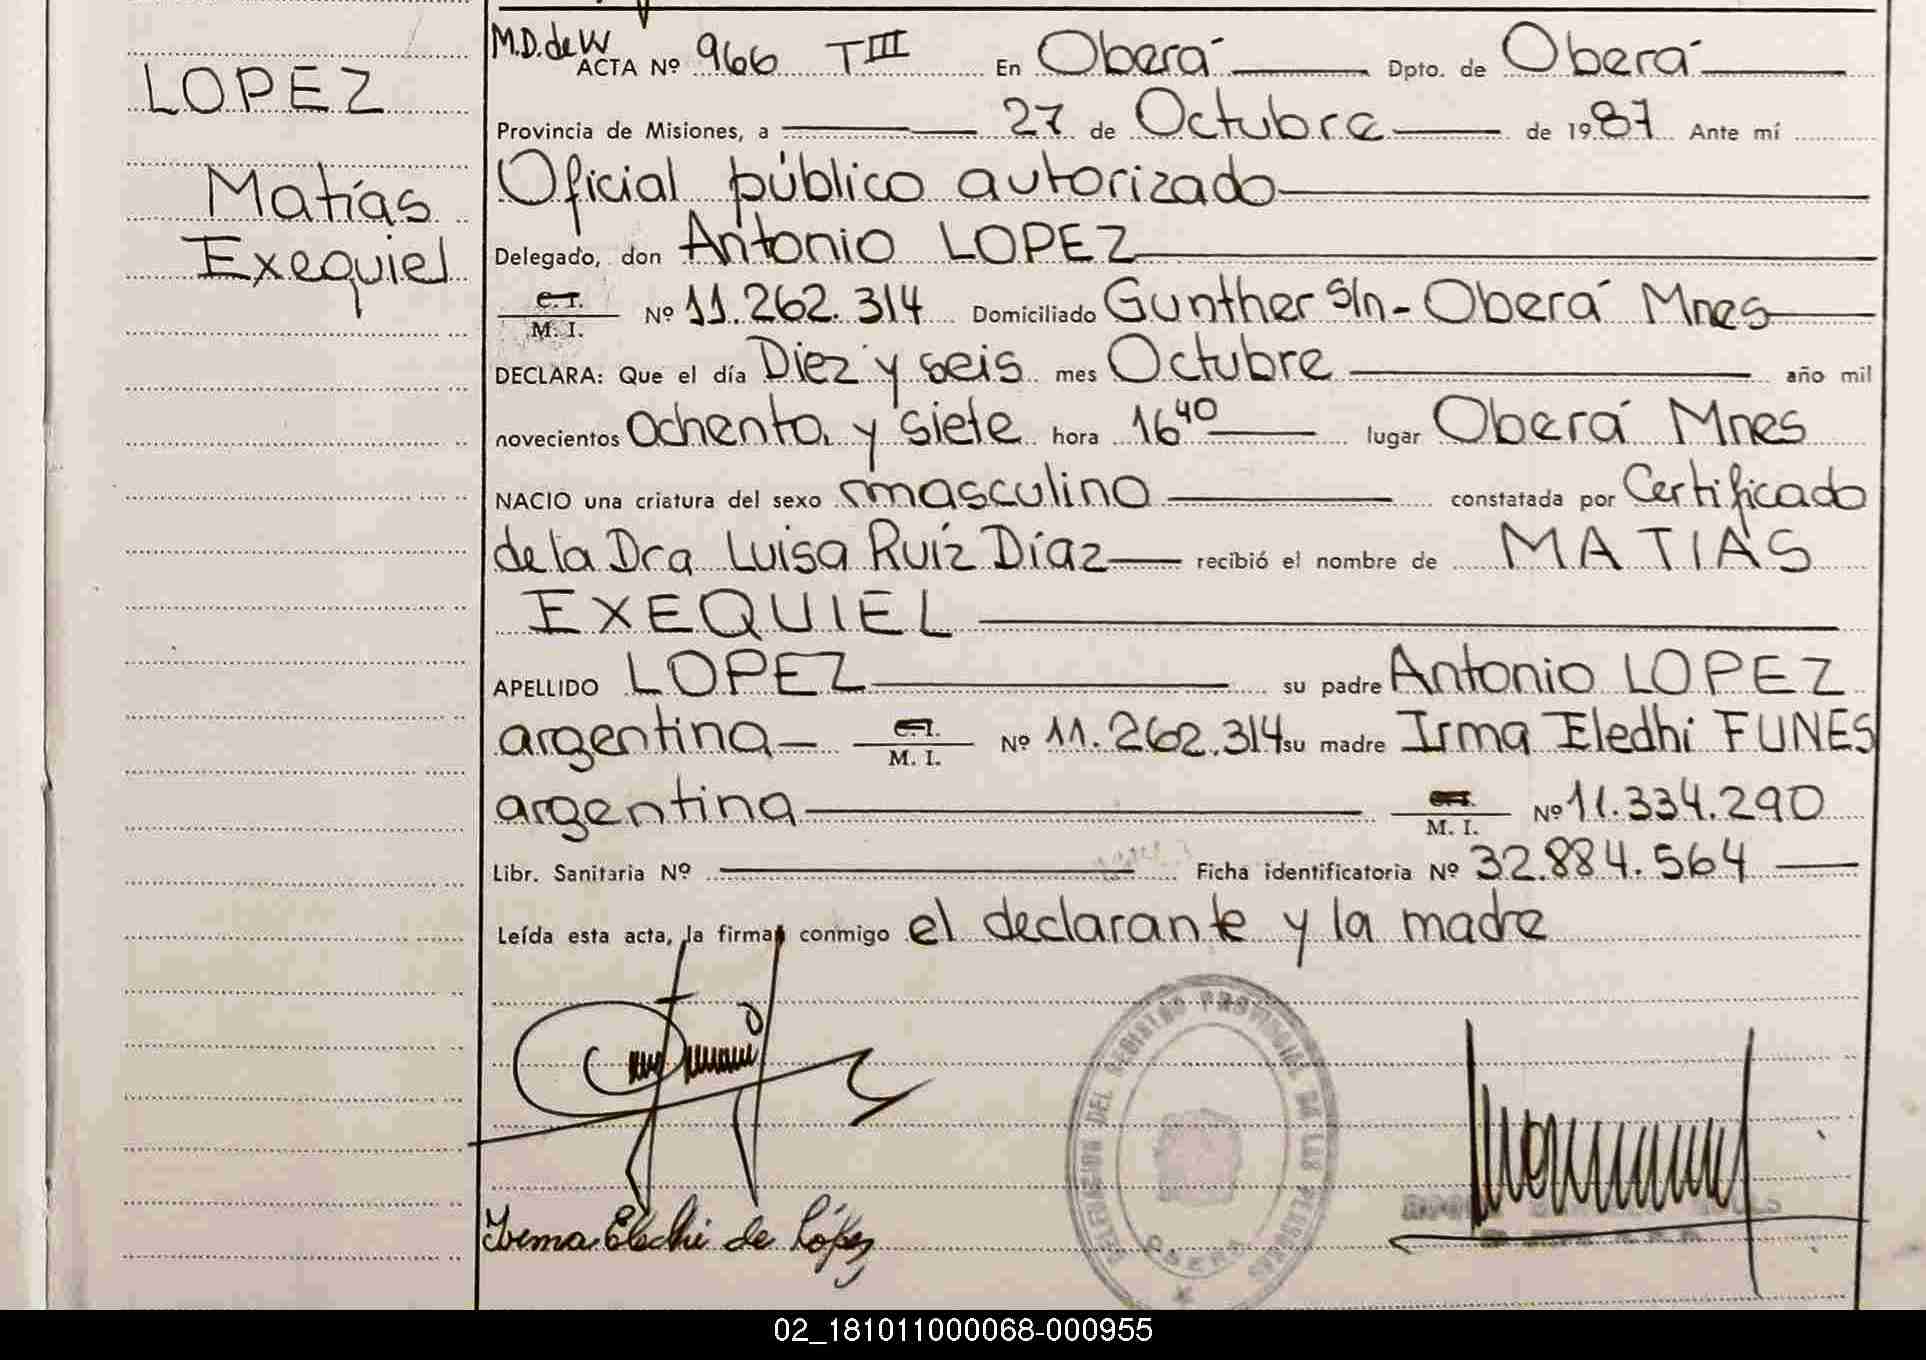 LOPEZ
Matías
Exequiel
M.D. de W
ACTA Nº 966 TIII En Oberá Dpto. de Oberá
Provincia de Misiones, a 27 de Octubre de 1987 Ante mí
Oficial público autorizado
Delegado, don Antonio LOPEZ
C. I.
M. I. Nº 11.262.314 Domiciliado Gunther S/n - Oberá Mnes
DECLARA: Que el día Diez y seis mes Octubre año mil
novecientos ochenta y siete hora 16 40 lugar Oberá Mnes
NACIO una criatura del sexo masculino constatada por Certificado
de la Dra Luisa Ruíz Díaz recibió el nombre de MATIAS
EXEQUIEL
APELLIDO LOPEZ su padre Antonio LOPEZ
argentina C. I. M. I. Nº 11.262.314 su madre Irma Eledhi FUNES
argentina M. I. Nº 11.334.290
Libr. Sanitaria Nº Ficha identificatoria Nº 32.884.564
Leída esta acta, la firman conmigo el declarante y la madre
Irma Eledhi de López
DELEGACION DEL REGISTRO PROVINCIAL DE LAS PERSONAS
OBERA
02_181011000068-000955